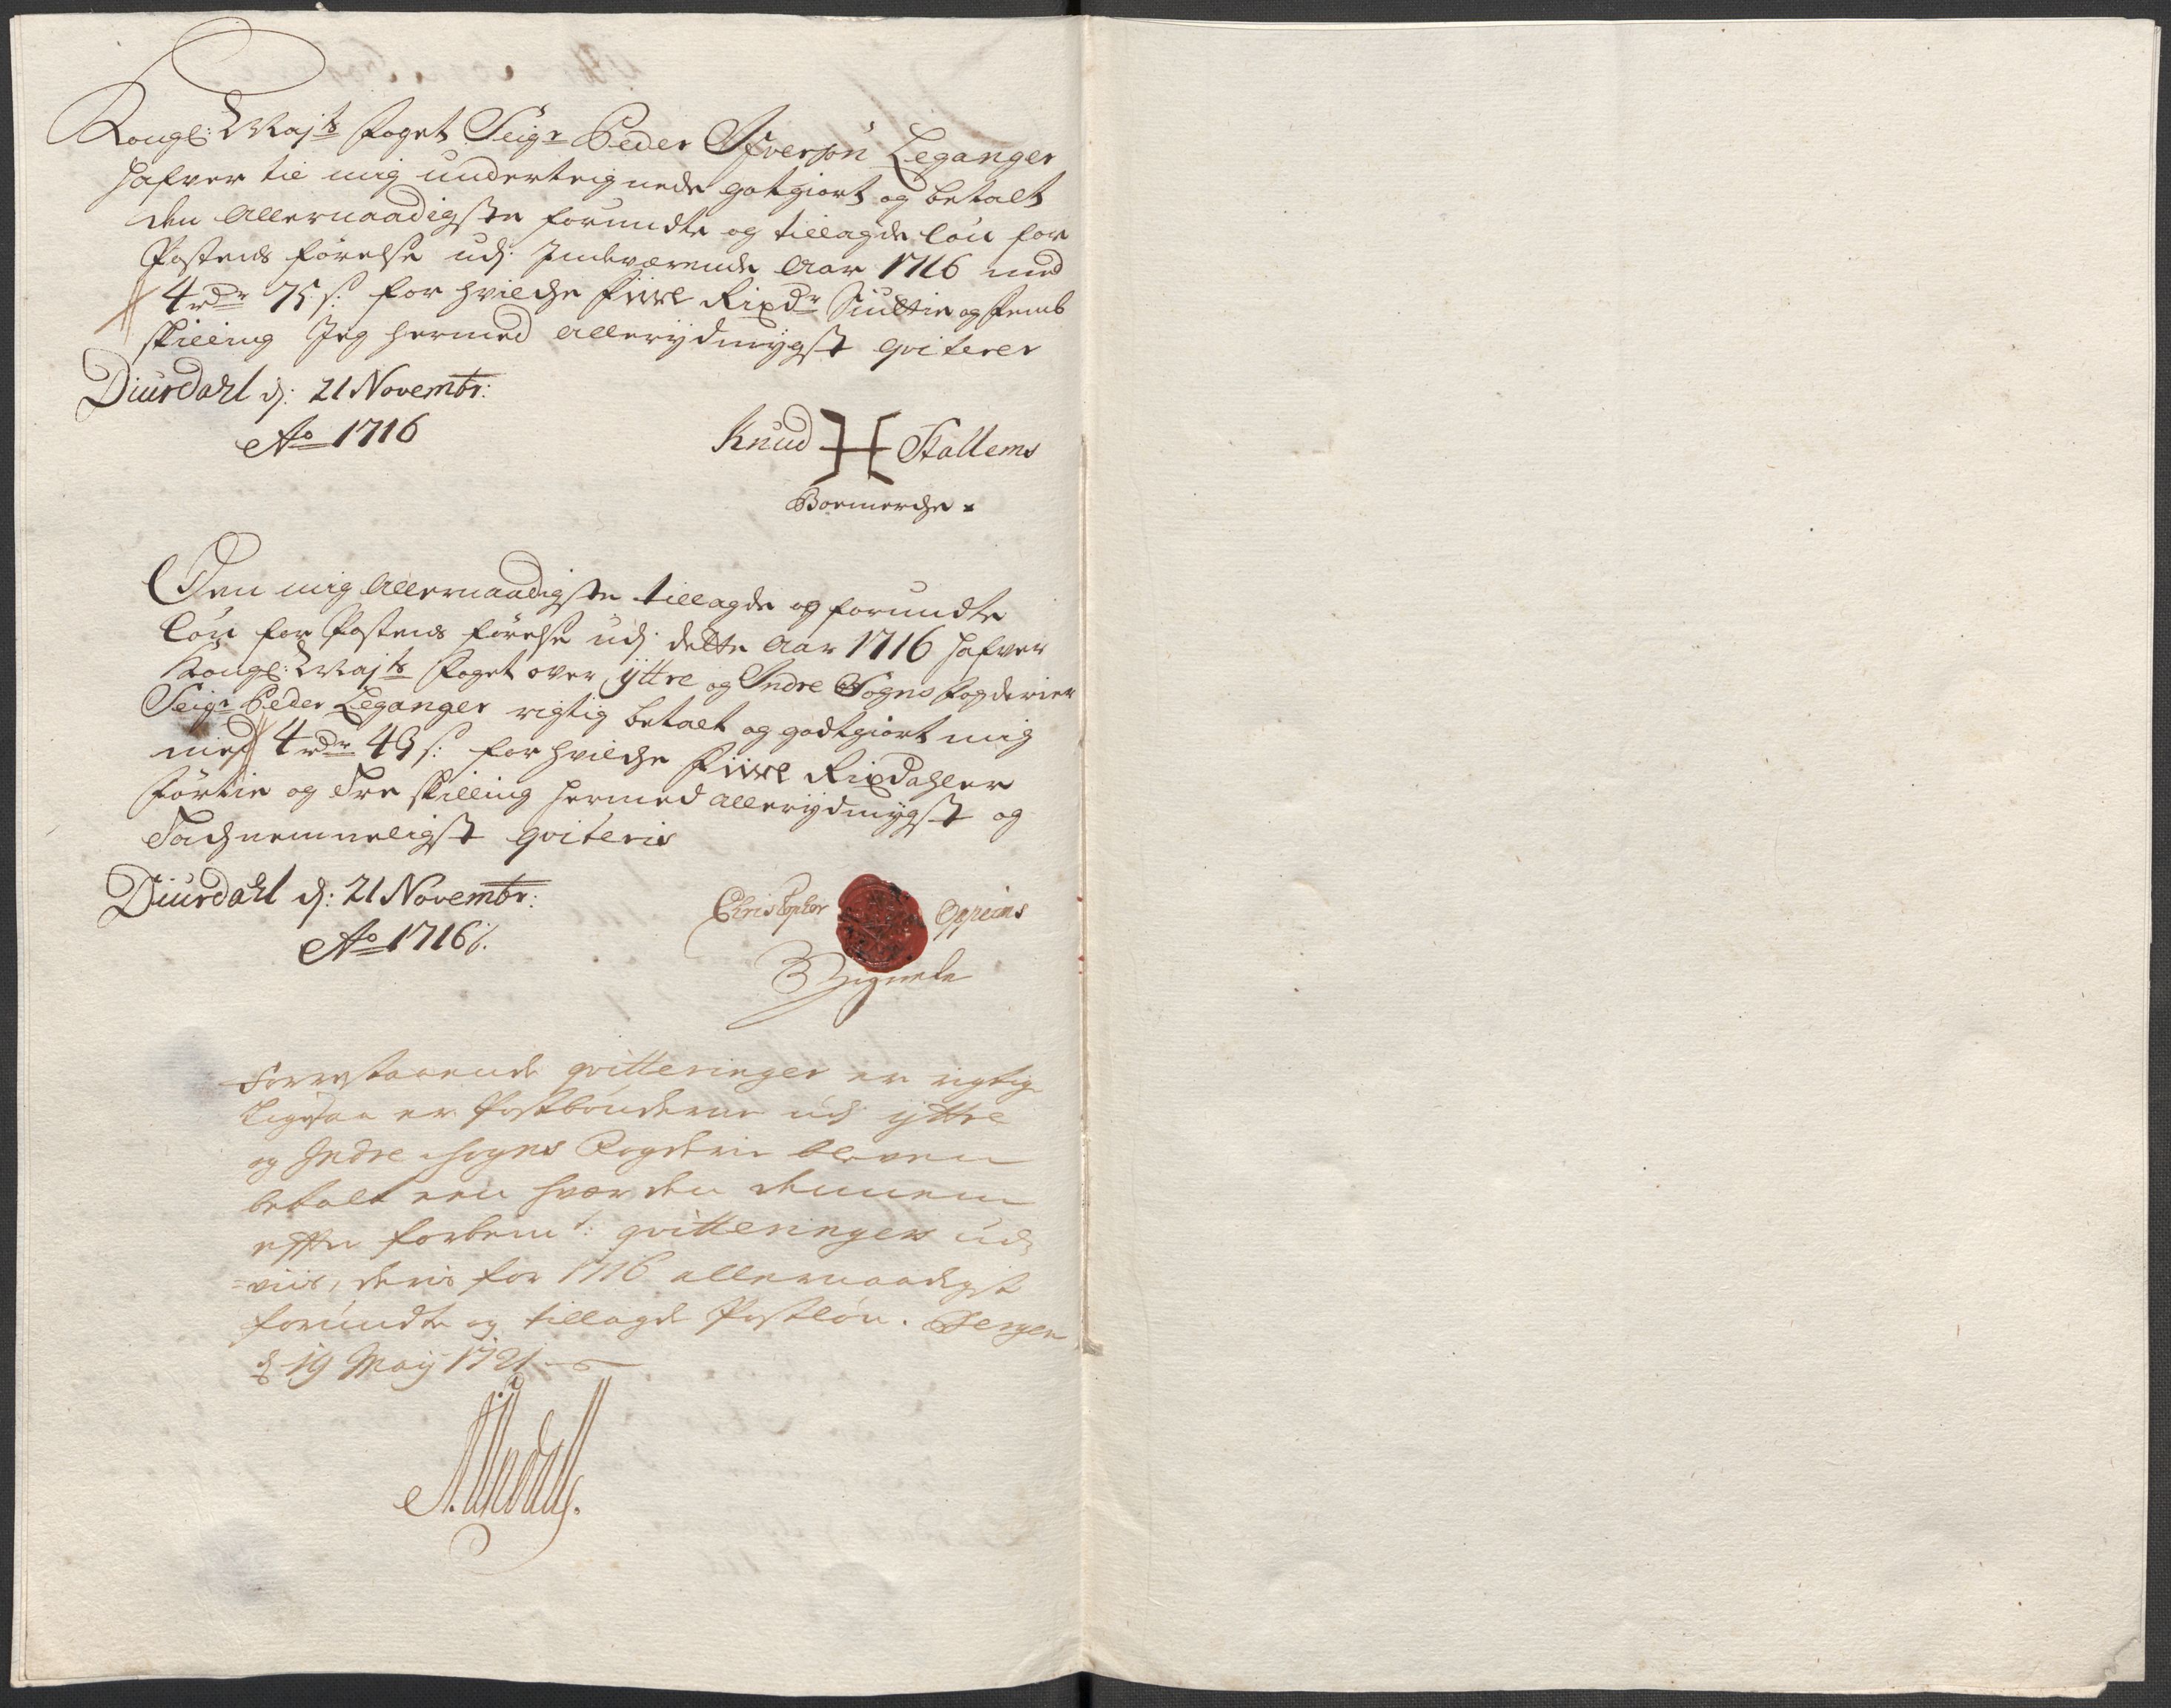 Kongl: Maÿts Foget Seigr Peder Ifverson Leganger
hafver til mig underteignede gotgiort og betalt
den Allernaadigste forundte og tillagde løn for
Postens førelse udj Indeværende Aar 1716 med
4 rdr 75 s: for hvilche Fiire Rixdr Siuttie og femb
skilling Jeg hermed allerÿdmÿgst qviterer
Diurdahl d: 21 Novembr:
Ao 1716
Knud Stallems
Boemerche
Den mig Allernaadigste tillagde og forundte
løn for Postens førelse udj dette Aar 1716 hafver
Kongl: Maÿts Foget over ÿttre og Indre Sogns fogderier
Seigr Peder Leganger rigtig betalt og godtgiort mig
med 4 rdr 43 s: for hvilche Fiire Rixdahler
førtie og Tre skilling hermed allerÿdmÿgst og
Tachnemmeligst qviteris
Diurdahl d: 21 Novembr:
Ao 1716
Christopher Oppeims
Zignete
Forrestaaende qvitteringer er rigtig
ligesaa er Postbønderne udj ÿttre
og Indre Sogns Fogderie bleven
betalt een hver den dennem
efter forbemt: qvitteringers ud
=viis, deris for 1716 allernaadigst
forundte og tillagde Postløn. Bergen
d 19 Maÿ 1721